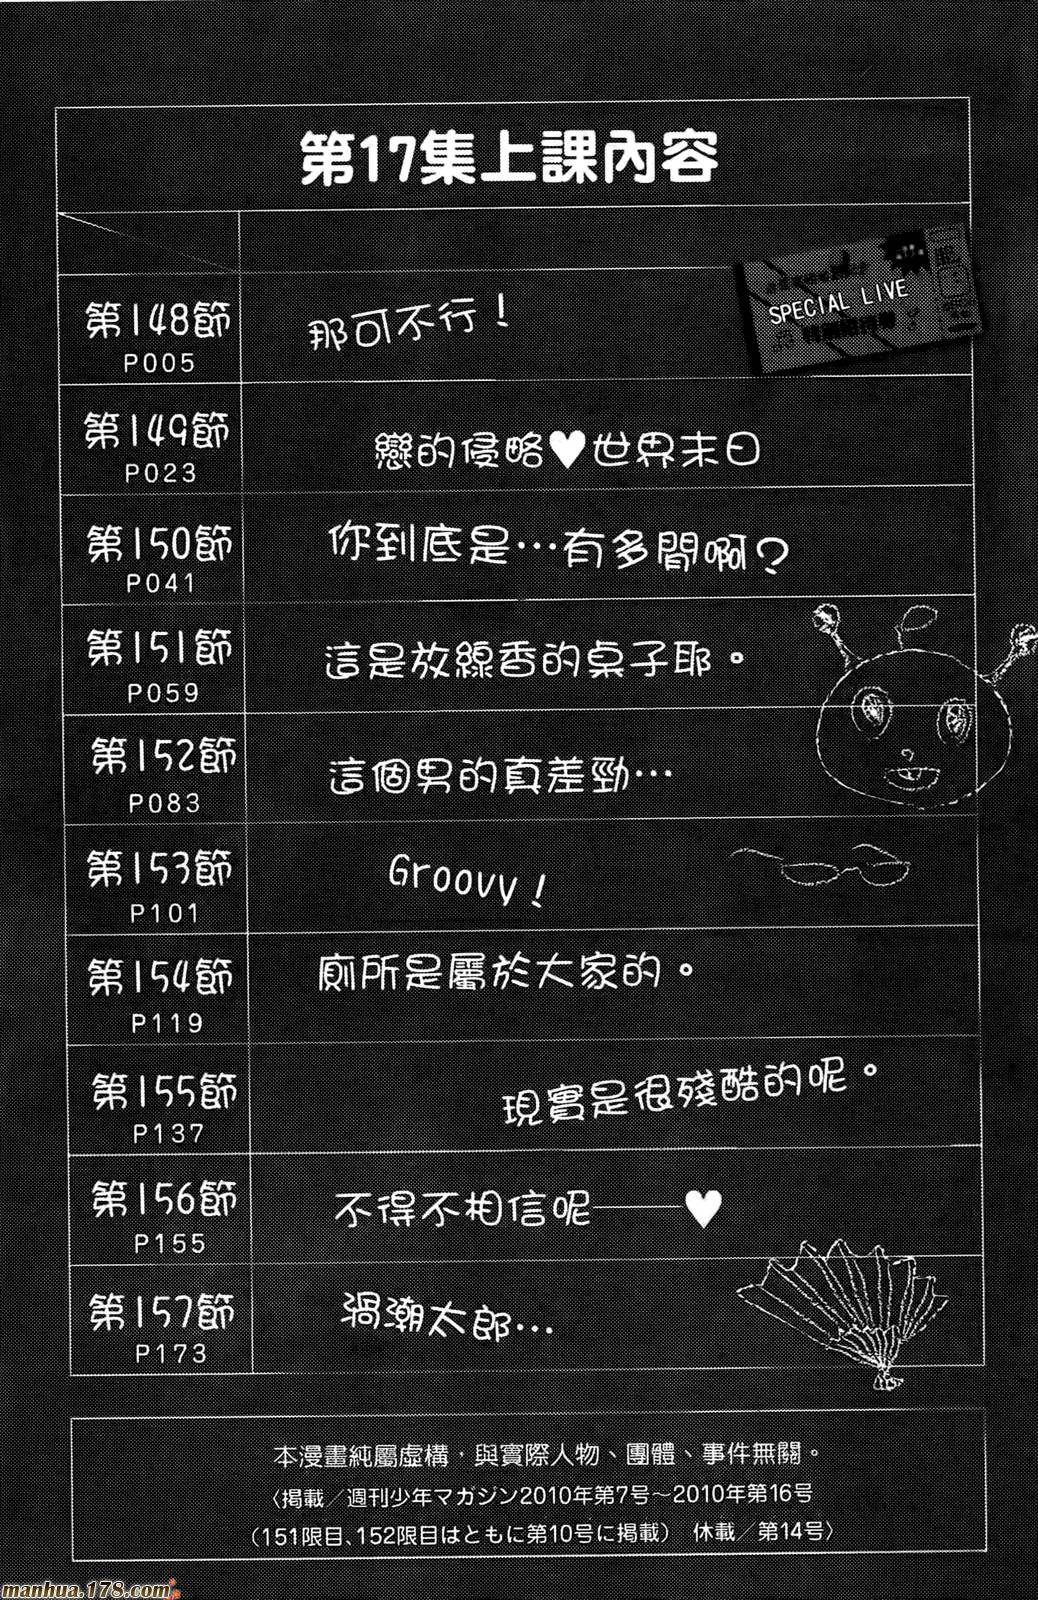 第17集上課內容
SPECIAL LIVE
第148節
P005
那可不行！
第149節
P023
戀的侵略♥世界末日
第150節
P041
你到底是…有多閒啊？
第151節
P059
這是放線香的桌子耶。
第152節
P083
這個男的真差勁…
第153節
P101
Groovy！
第154節
P119
廁所是屬於大家的。
第155節
P137
現實是很殘酷的呢。
第156節
P155
不得不相信呢——♥
第157節
P173
渦潮太郎…
本漫畫純屬虛構，與實際人物、團體、事件無關。
〈掲載／週刊少年マガジン2010年第7号～2010年第16号
（151限目、152限目はともに第10号に掲載）　休載／第14号〉
manhua.178.com